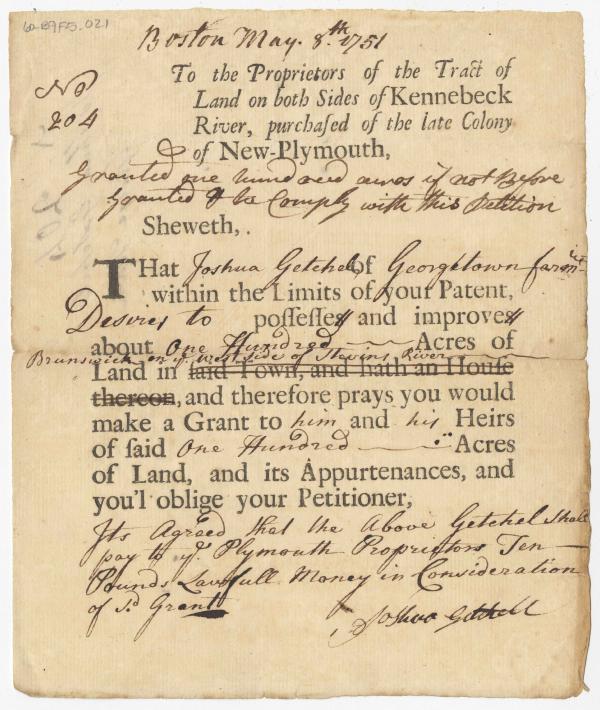 62-B9F5.021
Boston May. 8.th 1751
No
204
To the Proprietors of the Tract of
Land on both Sides of Kennebeck
River, purchaſed of the late Colony
of New-Plymouth,
Granted one hundred acres if not Before
Granted & he Comply with this Petition
Sheweth,
THat Joshua Getchel of Georgetown farmer
within the Limits of your Patent,
Desires to poſſeſſes and improves
about One Hundred Acres of
Brunswick on ye west side of Stevens River
Land in ſaid Town, and hath an Houſe
thereon, and therefore prays you would
make a Grant to him and his Heirs
of ſaid One Hundred Acres
of Land, and its Appurtenances, and
you'l oblige your Petitioner,
Its Agreed that the Above Getchel shall
pay to ye Plymouth Proprietors Ten
Pounds Lawfull Money in Consideration
of sd Grant
Joshua Getchell